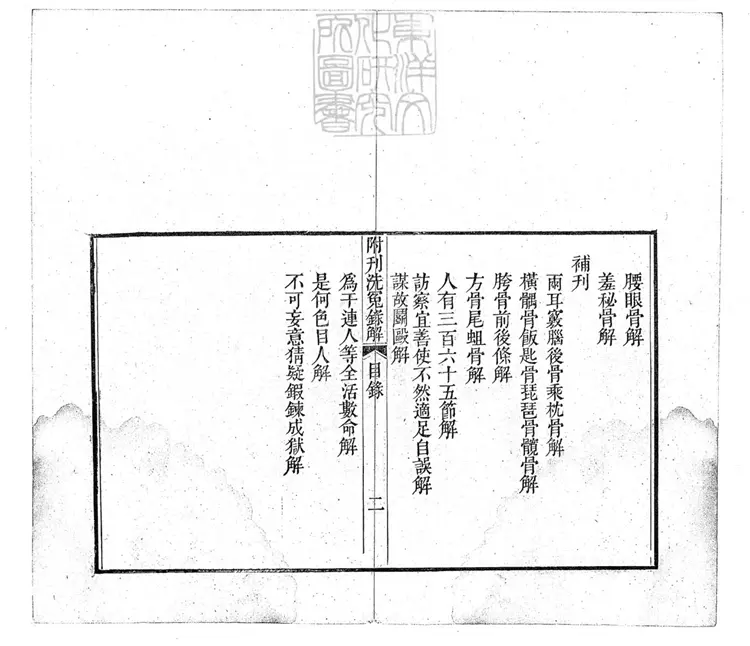 東洋文
化研究
所圖書
腰眼骨解
羞秘骨解
補刊
兩耳竅腦後骨乘枕骨解
橫髃骨飯匙骨琵琶骨髖骨解
胯骨前後條解
方骨尾蛆骨解
人有三百六十五節解
訪察宜善使不然適足自誤解
謀故鬭毆解
附刊洗冤錄解 目錄 二
為干連人等全活數命解
是何色目人解
不可妄意猜疑鍛鍊成獄解